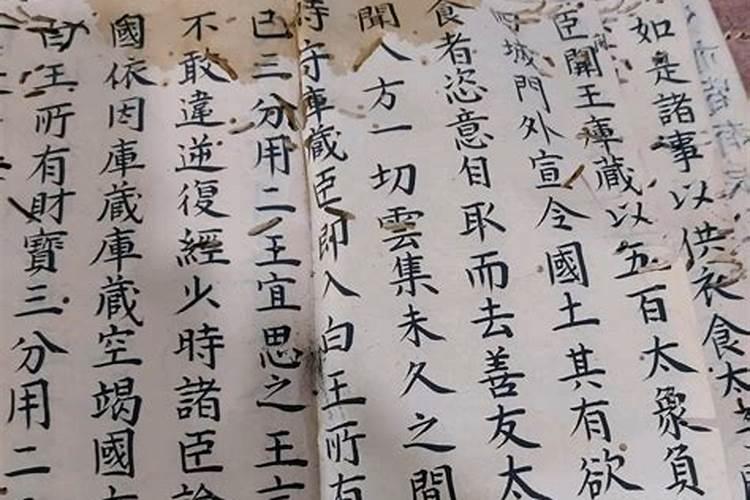 如是諸事以供衣食太
臣開王庫藏以五百太象負
城門外宣令國土其有欲
食者恣意自取而去善友太
聞八方一切雲集未久之間
時守庫藏臣即入白王所有
已三分用二王宜思之王言
不敢違逆復經少時諸臣論
國依因庫藏庫藏空竭國
白王所有財寶三分用二